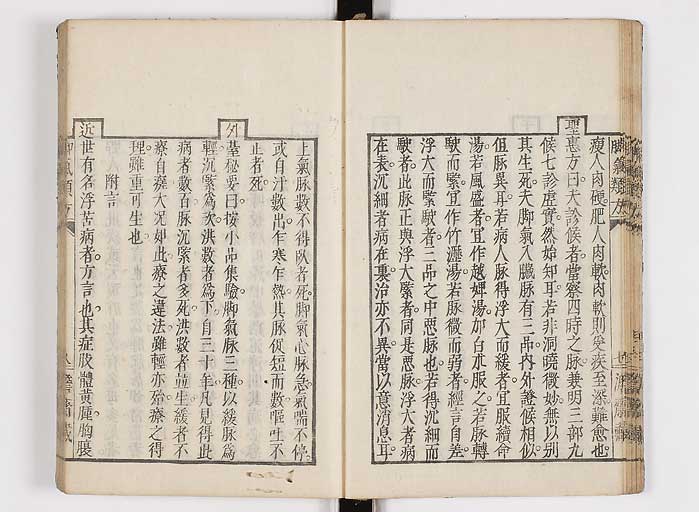 瘦人肉硬肥人肉軟肉軟則受疾至深難愈也
聖惠方曰夫診候者當察四時之脉兼明三部九
候七診虛實然始知耳若非洞曉微妙無以別
其生死夫脚氣入臟脉有三品内外證候相似
但脉異耳若病人脉得浮大而緩者宜服續命
湯若風盛者宜作越婢湯加白朮服之若脉轉
駛而緊宜作竹瀝湯若脉微而弱者經言自差
浮大而緊駛者三品之中惡脉也若得沉細而
駛者此脉正與浮大緊者同是惡脉浮大者病
在表沉細者病在裏治亦不異當以意消息耳
上氣脉數不得臥者死脚氣心脉急氣喘不停
或自汗數出乍寒乍熱其脉促短而數嘔吐不
止者死
外臺秘要曰按小品集驗脚氣脉三種以緩脉為
輕沉緊為次洪數者為下自三十年凡見得此
病者數百脉沉緊者多死洪數者並生緩者不
療自瘥大況如此療之違法雖輕亦殆療之得
理雖重可生也
附言
近世有名浮苦病者方言也其症肢體黃腫胸
脚氣類方